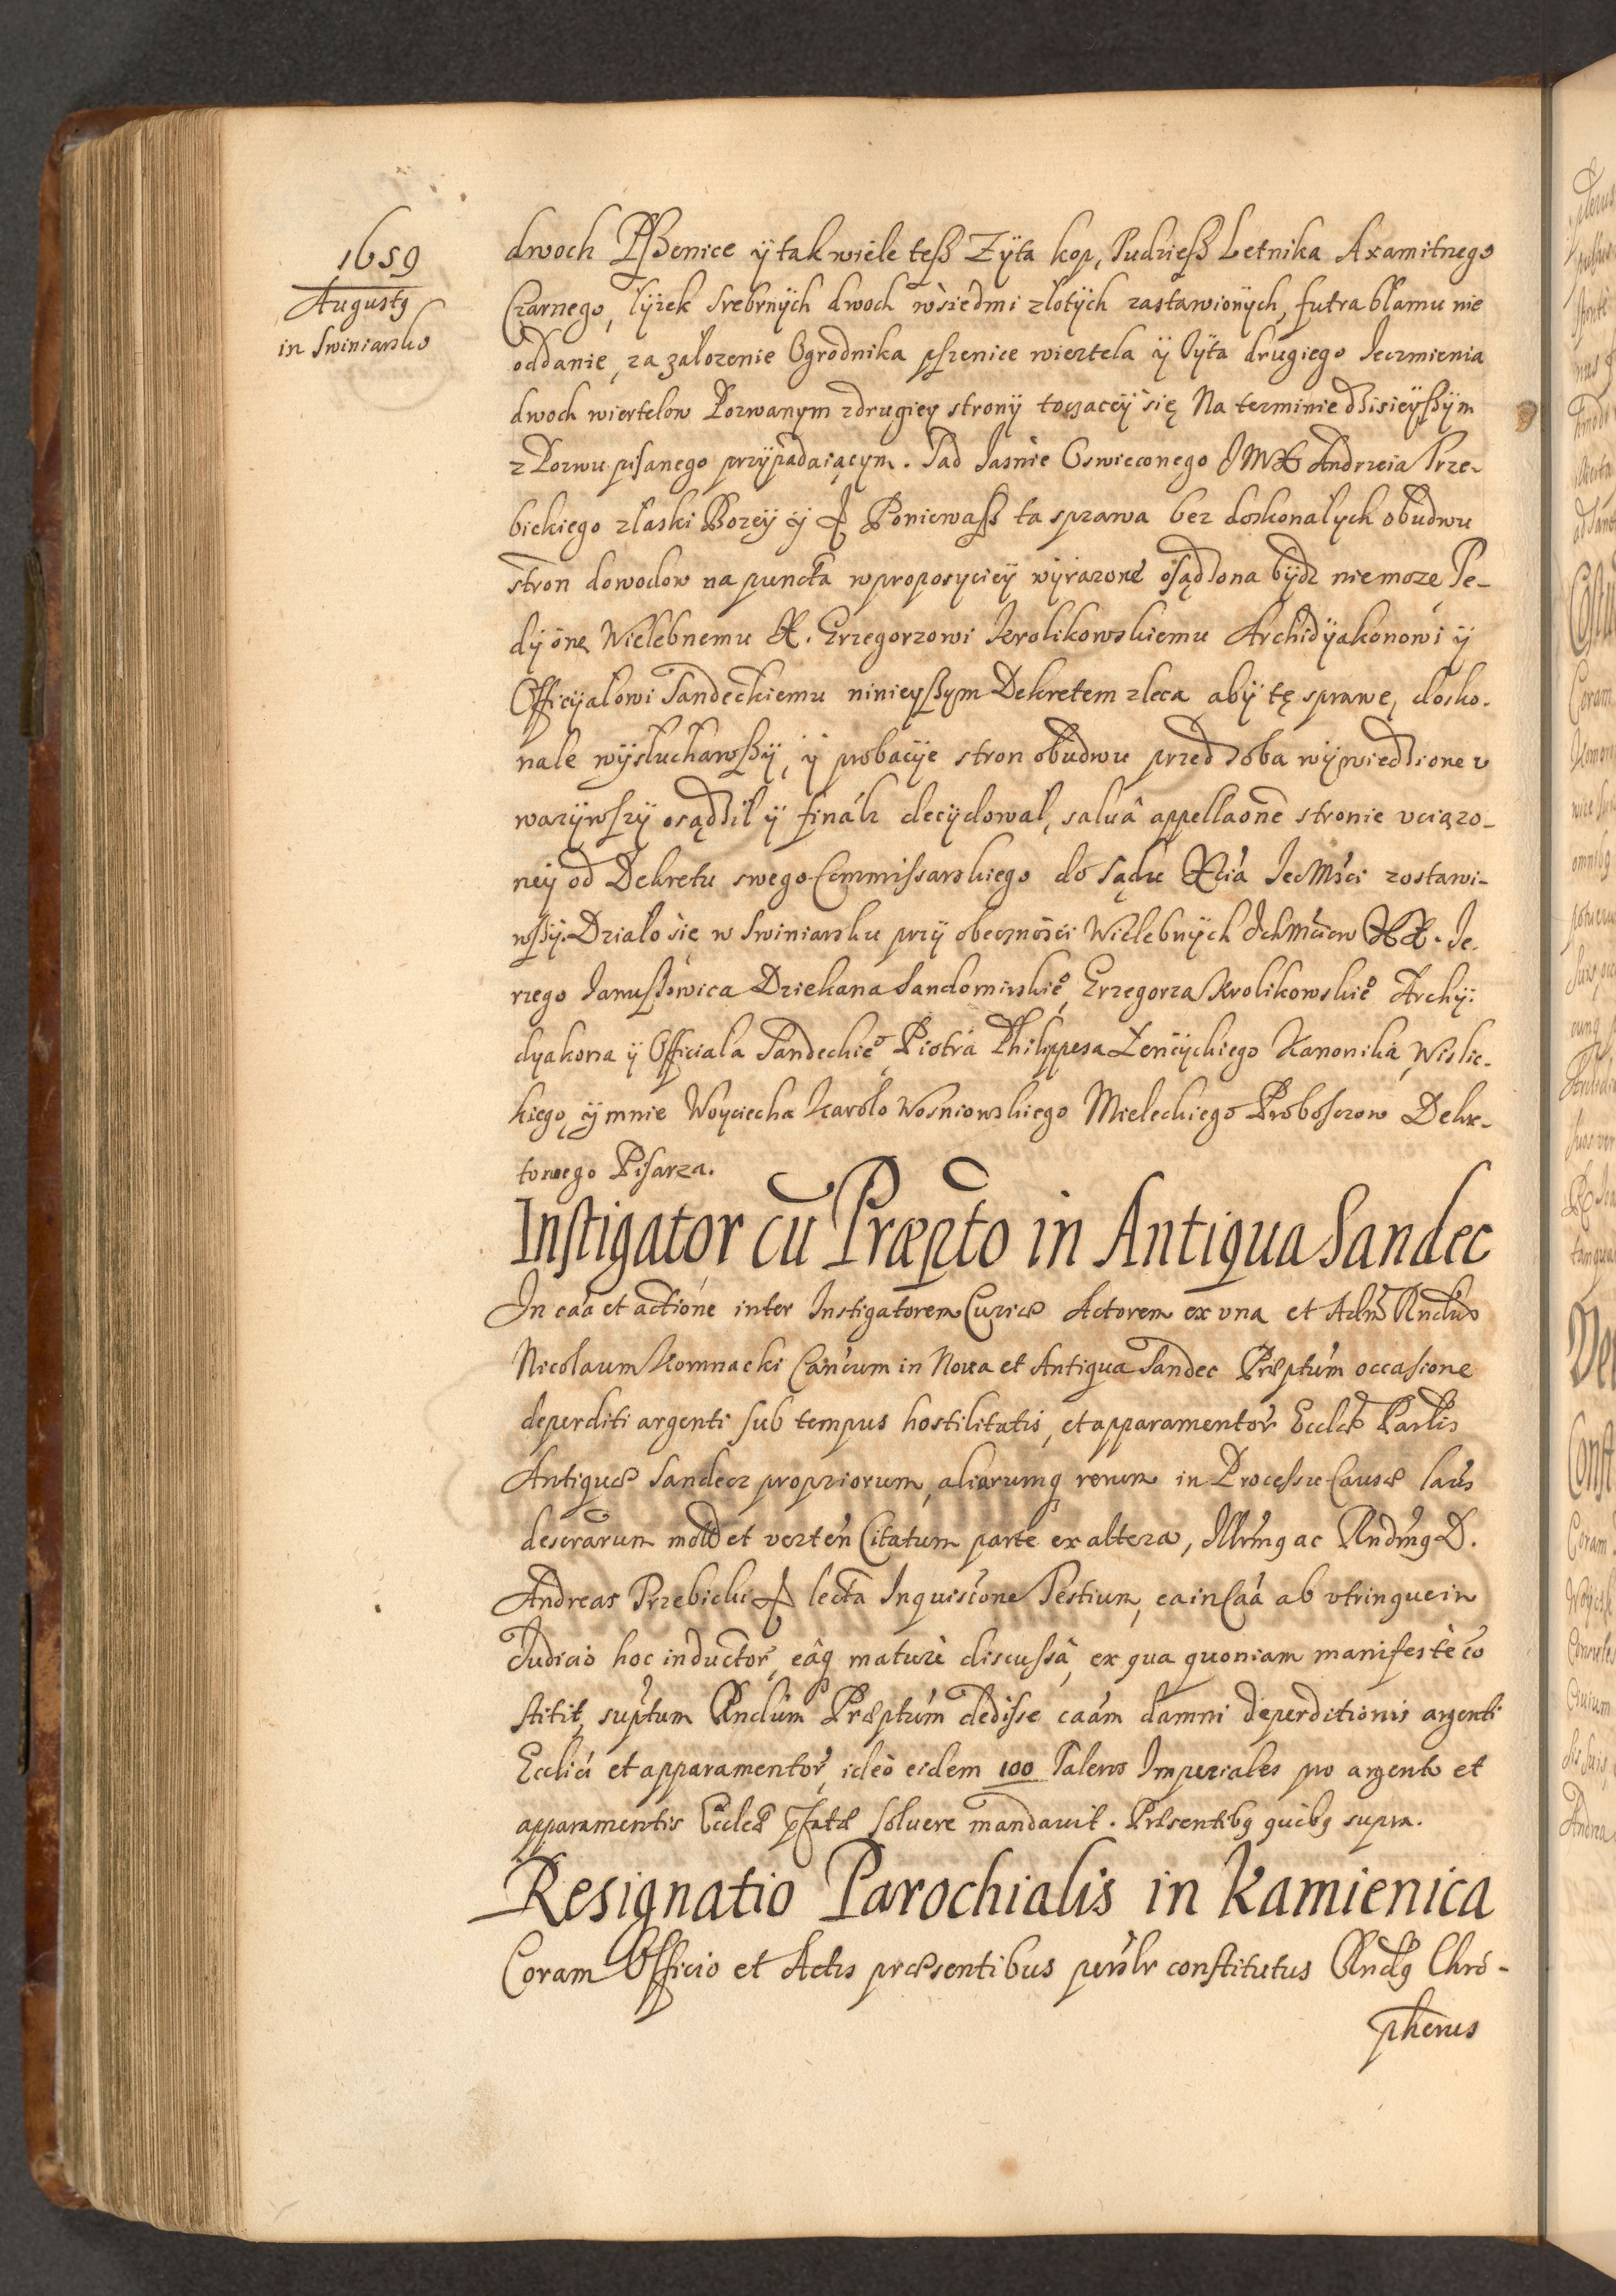 1659
Augustg
in Swiniarsko
dwoch Pßenice ÿ tak wiele teß Zÿta kop, Pudzieß Letnika Axamitnego
Czarnego, lyżek srebrnÿch dwoch w siedmi zlotÿch zastawionÿch, futra blamu nie
oddanie, za zalozenie Ogrodnika pszenice wiertela ÿ zÿta drugiego Ieczmienia
dwoch wiertelow Pozwanym zdrugiey stronÿ toczaceÿ się Na terminie dzisieÿßÿm
z Pozwu pisanego przÿpadaiącym. Sad Iasnie Oswieconego JMX Andrzeia Trze-
bickiego z laski Bozeÿ ÿ Poniewaß ta sprawa bez doskonalych obudwu
stron dowodow na puncta w proposyciey wÿrazone osądzona bÿdz niemoze Te-
dÿ onę Wielebnemu X. Grzegorzowi Krolikowskiemu Archidÿakonowi ÿ
Officÿalowi Sandeckiemu ninieyßym Dekretem zleca abÿ tę sprawę, dosko-
nale wÿsluchawßÿ, ÿ probacÿe stron obudwu przed soba wÿwiedzione v
warzÿwszÿ osądzil ÿ finalr decÿdowal, saluâ appellaone stronie vciązo-
neÿ od Dekretu swego Commissarskiego do Sądu Xcia Iec Mści zostawi-
wßÿ. Dzialo sie w Swiniarsku przÿ obecznosci Wielebnÿch Ichmściow XX. Ie-
rzego Ianußowica Dziekana Sandomirskie°, Grzegorza Krolikowskie° Archÿ-
dyakona ÿ Officiala Sandeckie°, Piotra Philippesa Łencÿckiego Kanonika, Wislic-
kiego, ÿ mnie Woyciecha Karolo Wosniowskiego Mieleckiego Proboszczow Dekre-
towego Pisarza.
Instigator cū Præpto in Antiqua Sandec
In caa et actione inter Instigatorem Curiæ Actorem ex vna et Adm Rndum
Nicolaum Komnacki Cancum in Noua et Antiqua Sandec Præptum occasione
deperditi argenti sub tempus hostilitatis, et apparamentor Ecclæ Parlis
Antiquæ Sandecz propriorum, aliarumq rerum in Processu Causæ laus
descrarum modo et verten Citatum parte ex altera, Illrmg ac Rndmg D.
Andreas Trzebicki lecta Inquisicone Testium, ea in Caa ab vtrinque in
Iudicio hoc inductor, eâq maturè discussâ, ex qua quoniam manifestè co
stitit, suptum Rndum Præptum dedisse caam damni deperditionis argenti
Ecclici et apparamentor, ideò eidem 100 Taleros Imperiales pro argento et
apparamentis Ecclæ pfatæ soluere mandauit. Præsentibg quibg supra.
Resignatio Parochialis in Kamienica
Coram Officio et Actis præsentibus persnlr constitutus Rndg Chro-
pherus